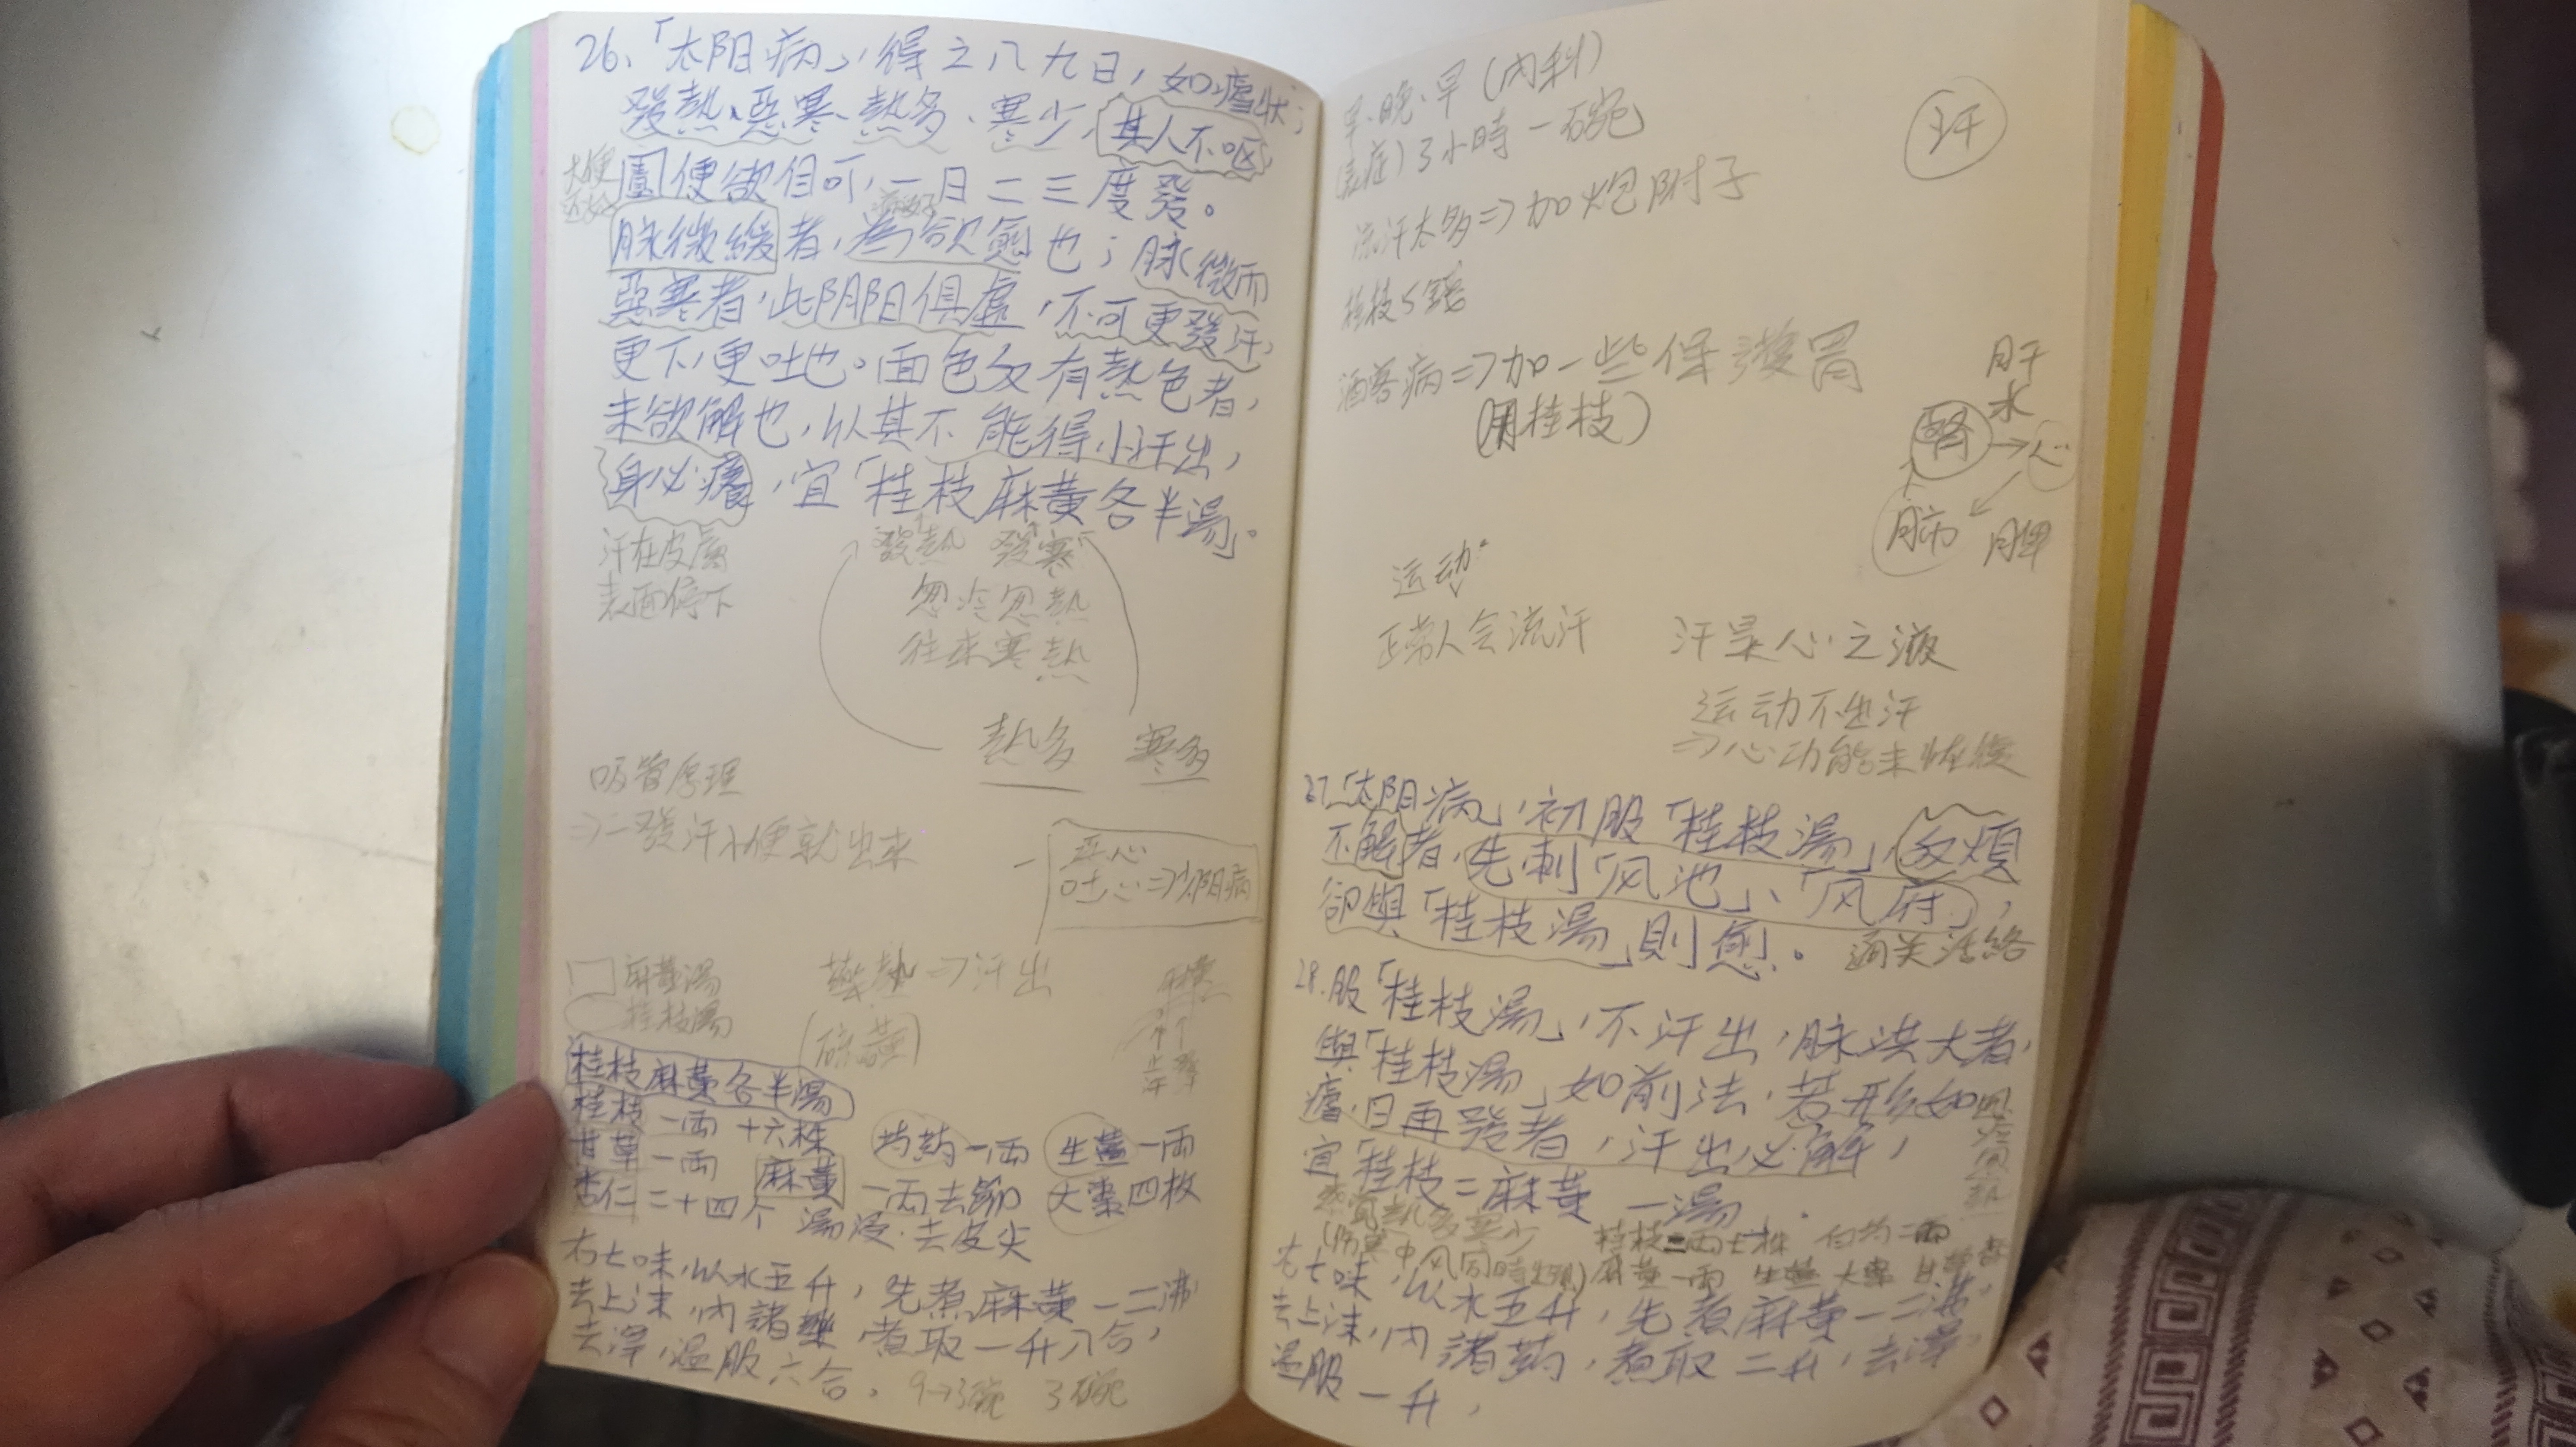 26、「太阳病」，得之八九日，如瘧狀；
發熱、惡寒、熱多、寒少，其人不嘔，
大便
圊便欲自可，一日二三度發。
脉微緩者，為欲愈也；脉微而
惡寒者，此阴阳俱虛，不可更發汗，
更下，更吐也。面色反有熱色者，
未欲解也，以其不能得小汗出，
身必癢，宜「桂枝麻黃各半湯」。
汗在皮膚
表面停下
發熱 發寒
忽冷忽熱
往來寒熱
熱多 寒多
吸管原理
⇒一發汗小便就出來
恶心
吐心⇒少阳病
麻黃湯
桂枝湯
藥熱⇒汗出
桂枝麻黃各半湯
桂枝一兩十六株 芍药一兩 生薑一兩
甘草一兩 麻黃一兩去節 大棗四枚
杏仁二十四个 湯浸·去皮尖
右七味，以水五升，先煮麻黃一二沸，
去上沫，內諸藥，煮取一升八合，
去滓，溫服六合。 9→3碗 3碗
早·晚·早(內科)
(表症)3小時一碗
汗
流汗太多⇒加炮附子
桂枝5錢
酒客病⇒加一些保護胃
(用桂枝)
肝
水
腎→心
肺 脾
运动
正常人会流汗
汗是心之液
运动不出汗
⇒心功能未恢復
27.「太阳病」，初服「桂枝湯」，反煩
不解者，先刺「风池」、「风府」，
卻與「桂枝湯」則愈。 通关活絡
28.服「桂枝湯」，不汗出，脉洪大者，
與「桂枝湯」如前法，若形如
瘧，日再發者，汗出必解，
宜「桂枝二麻黃一湯」。
熱多寒少
(伤寒中风同時出現)
桂枝二兩七株 白芍二兩
麻黃一兩 生薑 大棗
右七味，以水五升，先煮麻黃一二沸，
去上沫，內諸药，煮取二升，去滓，
溫服一升，